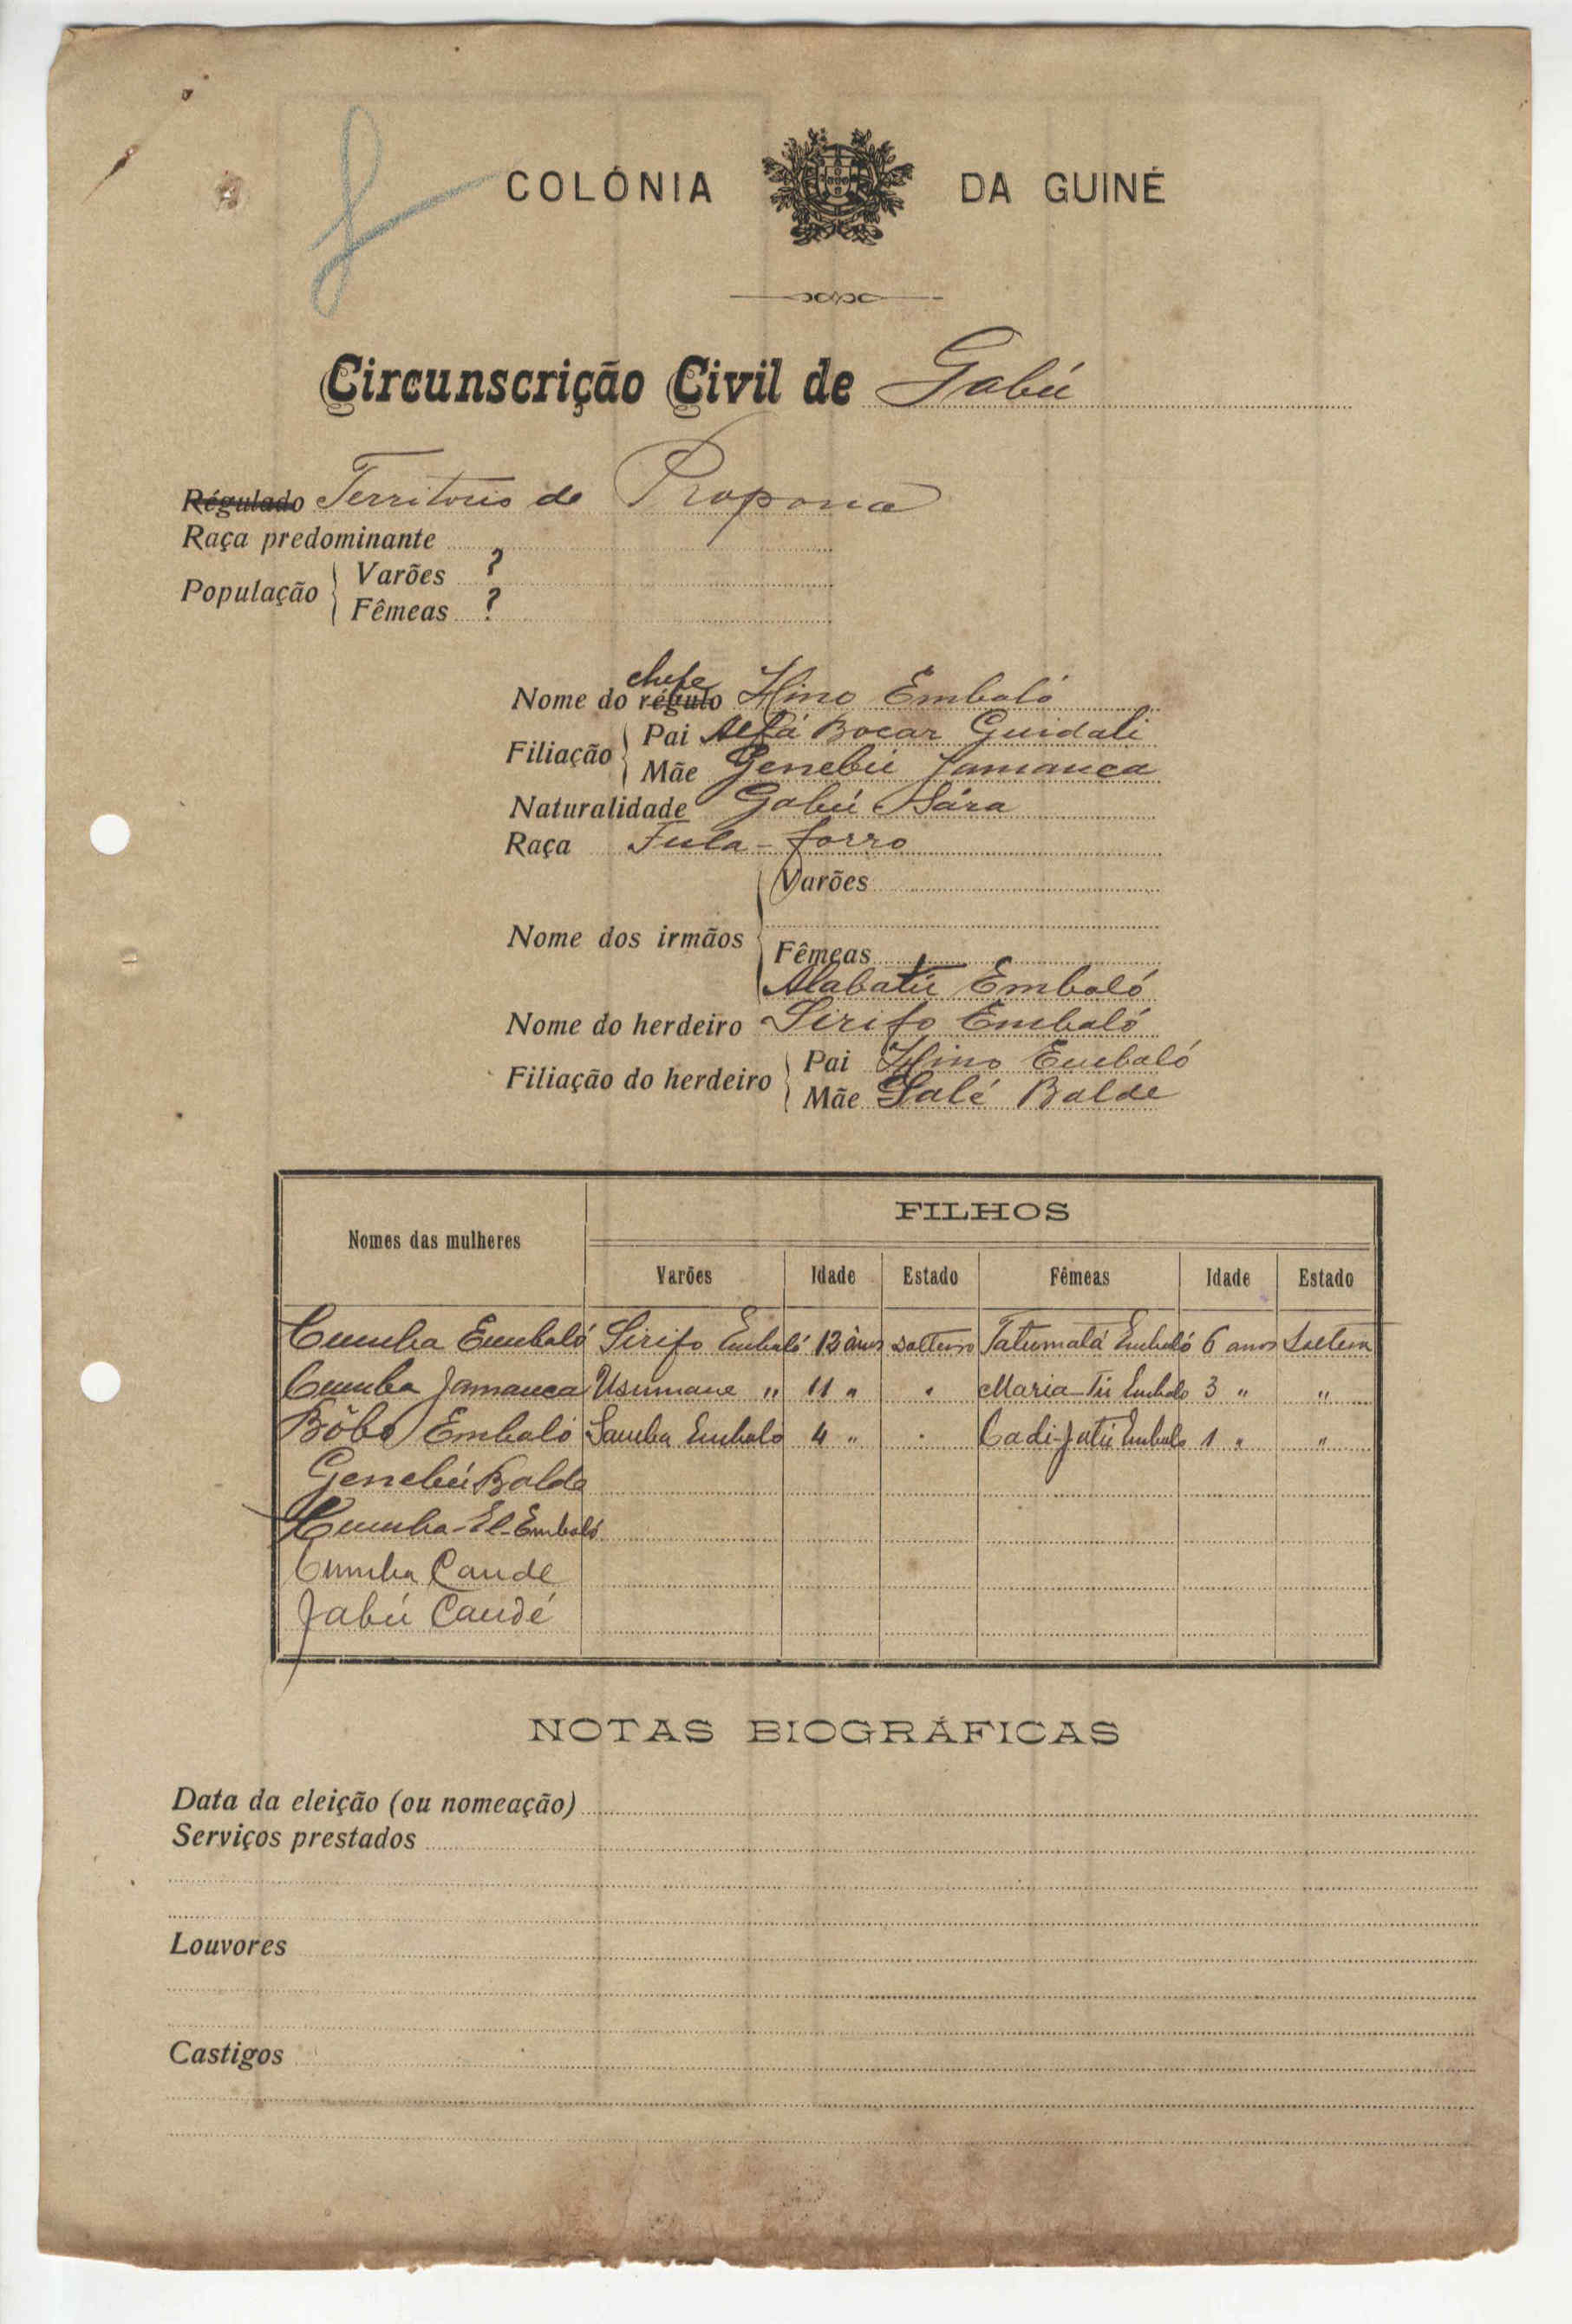 COLÓNIA DA GUINÉ
Circunscrição Civil de Gabú
Régulado Territorio de Propana
Raça predominante
População
Varões ?
Fêmeas ?
chefe
Nome do régulo Hino Embaló
Filiação
Pai Alfá Bocar Guidali
Mãe Genebú Jamanca
Naturalidade Gabú Sára
Raça Fula-forro
Varões
Nome dos irmãos
Fêmeas
Alabatú Embaló
Nome do herdeiro Sirifo Embaló
Filiação do herdeiro
Pai Hino Embaló
Mãe Salé Balde
Nomes das mulheres FILHOS
Varões Idade Estado Fêmeas Idade Estado
Cumba Embaló Sirifo Embaló 13 anos solteiro Fatumatá Embaló 6 anos Solteira
Cumba Jamanca Usumane " 11 " " Maria-Tú Embalo 3 " "
Bôbo Embaló Samba Embalo 4 " " Cadi-Jatú Embalo 1 " "
Genebú Balde
Cumba-El-Embaló
Cumba Cande
Jabú Candé
NOTAS BIOGRÁFICAS
Data da eleição (ou nomeação)
Serviços prestados
Louvores
Castigos